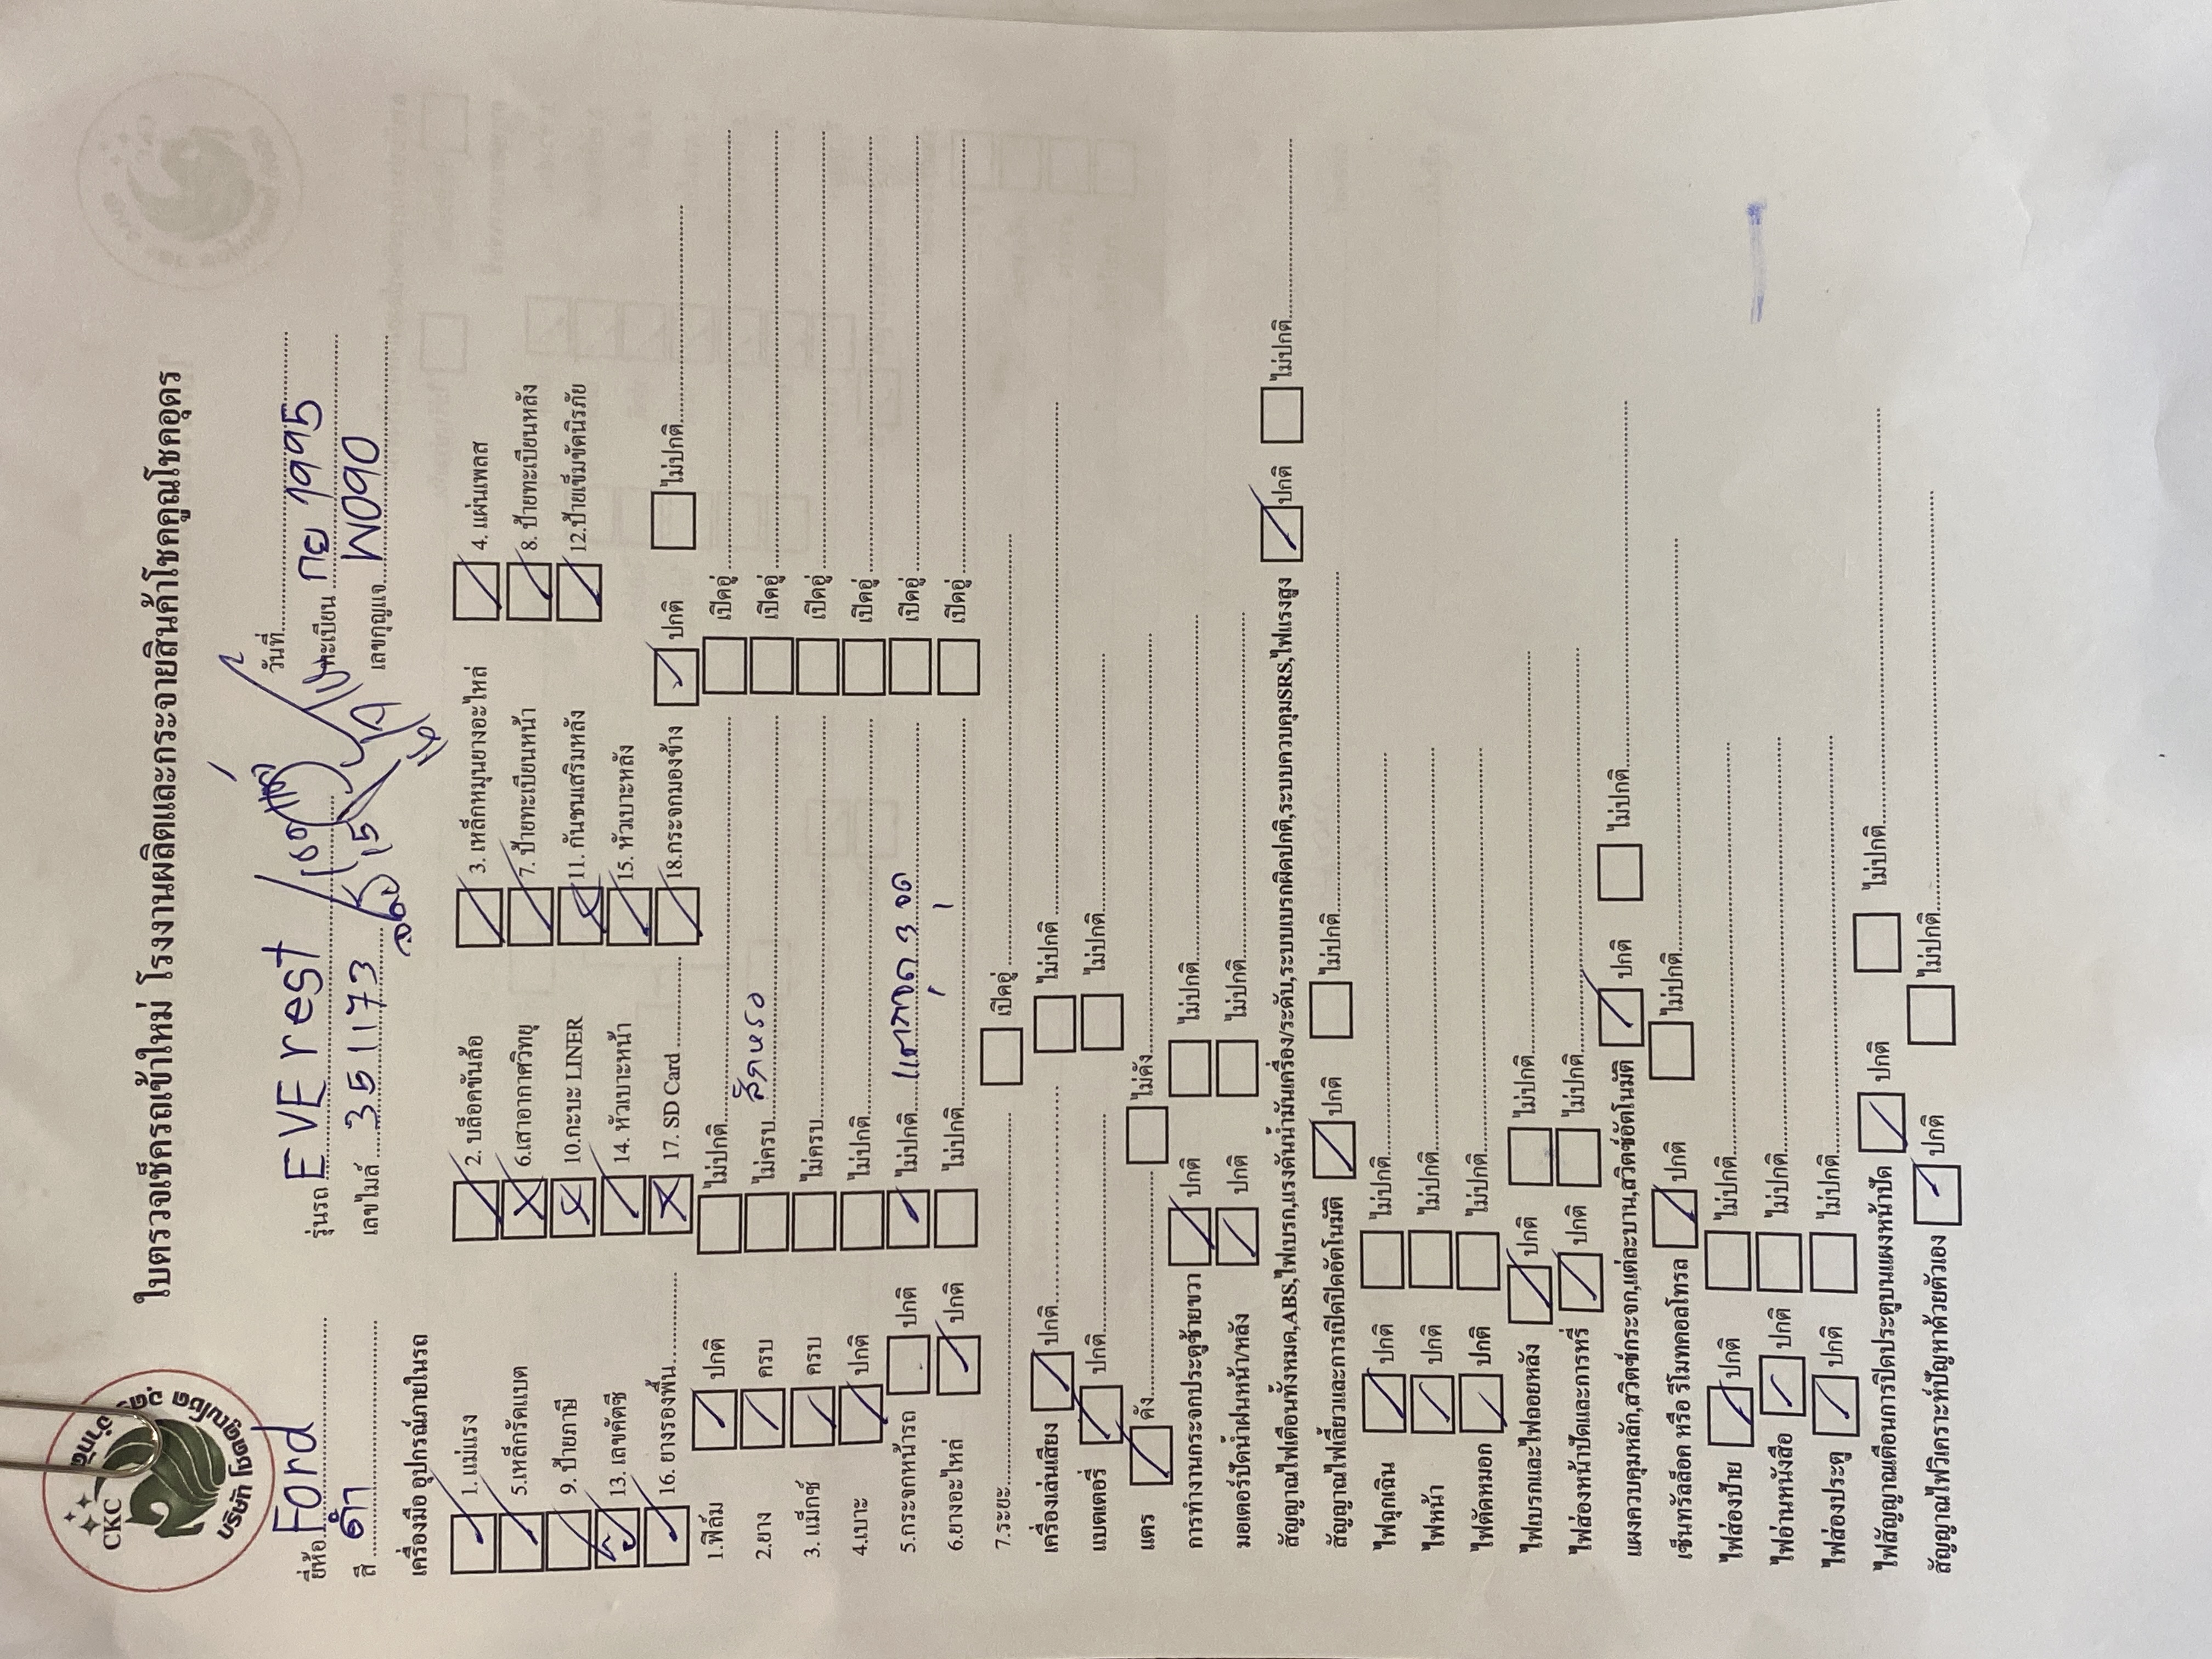 CKC
ใบตรวจเช็ครถเข้าใหม่ โรงงานผลิตและกระจายสินค้าโชคคูณโชคอุดร
วันที่
ยี่ห้อ Ford รุ่นรถ EVErest ทะเบียน กย 1995
สี ดำ เลขไมล์ 351173 เลขกุญแจ W090
เครื่องมือ อุปกรณ์ภายในรถ
1. แม่แรง 2. บล็อคขันล้อ 3. เหล็กหมุนยางอะไหล่ 4. แผ่นเพลส
5.เหล็กรัดแบต 6.เสาอากาศวิทยุ 7. ป้ายทะเบียนหน้า 8. ป้ายทะเบียนหลัง
9. ป้ายภาษี 10.กะบะ LINER 11. กันชนเสริมหลัง 12.ป้ายเข็มขัดนิรภัย
13. เลขคัตซี 14. หัวเบาะหน้า 15. หัวเบาะหลัง
16. ยางรองพื้น 17. SD Card 18.กระจกมองข้าง ปกติ ไม่ปกติ
1.ฟิล์ม ปกติ ไม่ปกติ เบิคอู่
2.ยาง ครบ ไม่ครบ เบิคอู่
3. แม็กซ์ ครบ ไม่ครบ เบิคอู่
4.เบาะ ปกติ ไม่ปกติ เบิคอู่
5.กระจกหน้ารถ ปกติ ไม่ปกติ 3 จุด เบิคอู่
6.ยางอะไหล่ ปกติ ไม่ปกติ เบิคอู่
7.ระยะ เบิคอู่
เครื่องเล่นเสียง ปกติ ไม่ปกติ
แบตเตอรี่ ปกติ ไม่ปกติ
แตร ดัง ไม่ดัง
การทำงานกระจกประตูซ้ายขวา ปกติ ไม่ปกติ
มอเตอร์ปัดน้ำฝนหน้า/หลัง ปกติ ไม่ปกติ
สัญญาณไฟเตือนทั้งหมด,ABS,ไฟเบรก,แรงดันน้ำมันเครื่อง/ระดับ,ระบบเบรกผิดปกติ,ระบบควบคุมSRS,ไฟแรงสูง ปกติ ไม่ปกติ
สัญญาณไฟเลี้ยวและการเปิดปิดอัตโนมัติ ปกติ ไม่ปกติ
ไฟฉุกเฉิน ปกติ ไม่ปกติ
ไฟหน้า ปกติ ไม่ปกติ
ไฟตัดหมอก ปกติ ไม่ปกติ
ไฟเบรกและไฟถอยหลัง ปกติ ไม่ปกติ
ไฟส่องหน้าปัดและการหรี่ ปกติ ไม่ปกติ
แผงควบคุมหลัก,สวิตช์กระจก,แต่ละบาน,สวิตช์อัตโนมัติ ปกติ ไม่ปกติ
เซ็นทรัลล็อค หรือ รีโมทคอลโทรล ปกติ ไม่ปกติ
ไฟส่องป้าย ปกติ ไม่ปกติ
ไฟอ่านหนังสือ ปกติ ไม่ปกติ
ไฟส่องประตู ปกติ ไม่ปกติ
ไฟสัญญาณเตือนการปิดประตูบนแผงหน้าปัด ปกติ ไม่ปกติ
สัญญาณไฟวิเคราะห์ปัญหาด้วยตัวเอง ปกติ ไม่ปกติ